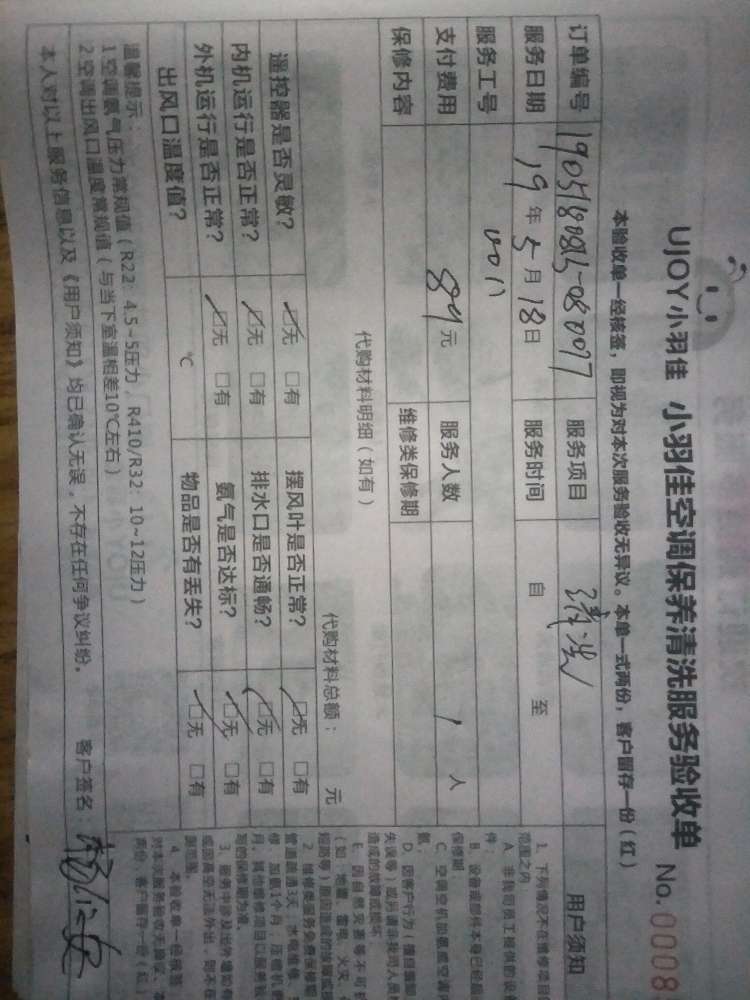 UJOY小羽佳 小羽佳空调保养清洗服务验收单 No.0008
本验收单一经核签，即视为对本次服务验收无异议。本单一式两份，客户留存一份（红）
订单编号 服务项目 清洗 用户须知
服务日期 19年5月18日 服务时间 自 至
服务工号 0011
支付费用 89元 服务人数 1人
保修内容 维修类保修期
代购材料明细（如有） 代购材料总额： 元
遥控器是否灵敏？ □无 □有 摆风叶是否正常？ □无 □有
内机运行是否正常？ □无 □有 排水口是否通畅？ □无 □有
外机运行是否正常？ □无 □有 氨气是否达标？ □无 □有
出风口温度值？ ℃ 物品是否有丢失？ □无 □有
温馨提示：
1空调氨气压力常规值（R22：4.5~5压力，R410/R32：10~12压力）
2空调出风口温度常规值（与当下室温相差10℃左右）
本人对以上服务信息以及《用户须知》均已确认无误，不存在任何争议纠纷。 客户签名：
1、下列情况不在维修项目
范围之内
A、非我司员工提供的设
B、设备或部件本身已经超
件；
保修期
C、空调空机加氨或空调内
氨、
D、因客户行为（擅自编
失误等）或另请非我司人员
造成的故障或损坏。
E、因自然灾害等不可
（如：地震、雷电、火灾、
短路等）原因造成的故障或损
2、维修类服务免费保修期
管道疏通3天，水电维修、
修、加氨1个月，压缩机
月，其他维修项目以服务
写的保修期为准。
3、服务中涉及给外墙如
或因高空无法外出，则不在
测范围。
4、本验收单一经核签
对本次服务验收无异议。本
两份，客户留存一份（红）